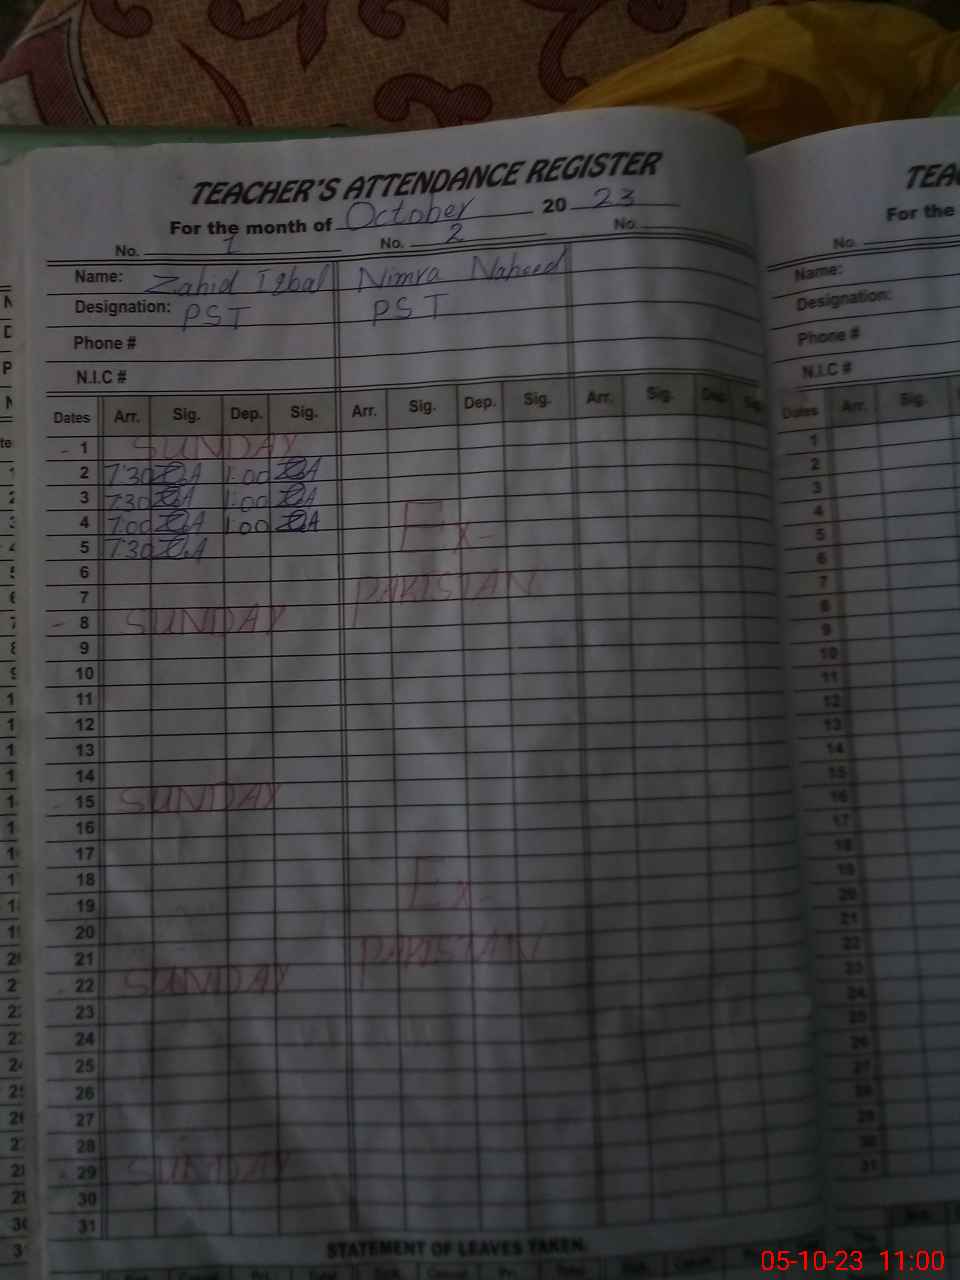 TEACHER'S ATTENDANCE REGISTER
For the month of October 2023
No. 1 No. 2 No.
Name: Zahid Iqbal Nimra Naheed
Designation: PST PST
Phone #
N.I.C #
Dates Arr. Sig. Dep. Sig. Arr. Sig. Dep. Sig. Arr. Sig. Dep. Sig.
1 SUNDAY
2 7:30 1:00
3 7:30 1:00
4 7:00 1:00 Ex-
5 7:30
6
7 PAKISTAN
8 SUNDAY
9
10
11
12
13
14
15 SUNDAY
16
17
18 Ex-
19
20
21 PAKISTAN
22 SUNDAY
23
24
25
26
27
28
29 SUNDAY
30
31
STATEMENT OF LEAVES TAKEN.
TEA
For the
No.
Name:
Designation:
Phone #
N.I.C #
Dates Arr. Sig.
1
2
3
4
5
6
7
8
9
10
11
12
13
14
15
16
17
18
19
20
21
22
23
24
25
26
27
28
29
30
31
05-10-23 11:00